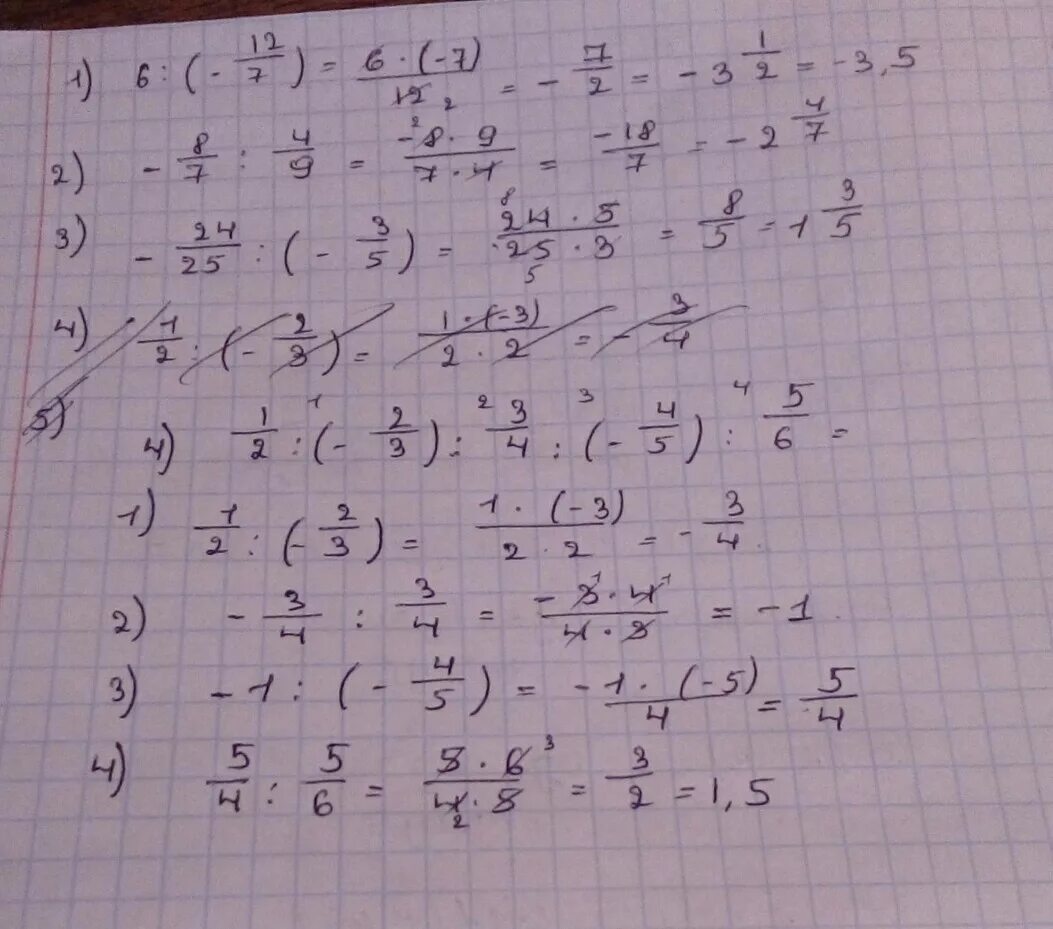 1) 6 : (- 12/7) = 6 · (-7)/12 2 = - 7/2 = - 3 1/2 = -3,5
2) - 8/7 : 4/9 = -8 2 · 9/7 · 4 = -18/7 = -2 4/7
3) - 24/25 : (- 3/5) = 24 8 · 5/25 5 · 3 = 8/5 = 1 3/5
4) 1/2 : (- 2/3) = 1 · (-3)/2 · 2 = - 3/4
5)
4) 1/2 :1 (- 2/3) :2 3/4 :3 (- 4/5) :4 5/6 =
1) 1/2 : (- 2/3) = 1 · (-3)/2 · 2 = - 3/4.
2) - 3/4 : 3/4 = - 3 1 · 4 1/4 · 3 = -1.
3) -1 : (- 4/5) = -1 · (-5)/4 = 5/4
4) 5/4 : 5/6 = 5 · 6 3/4 2 · 5 = 3/2 = 1,5